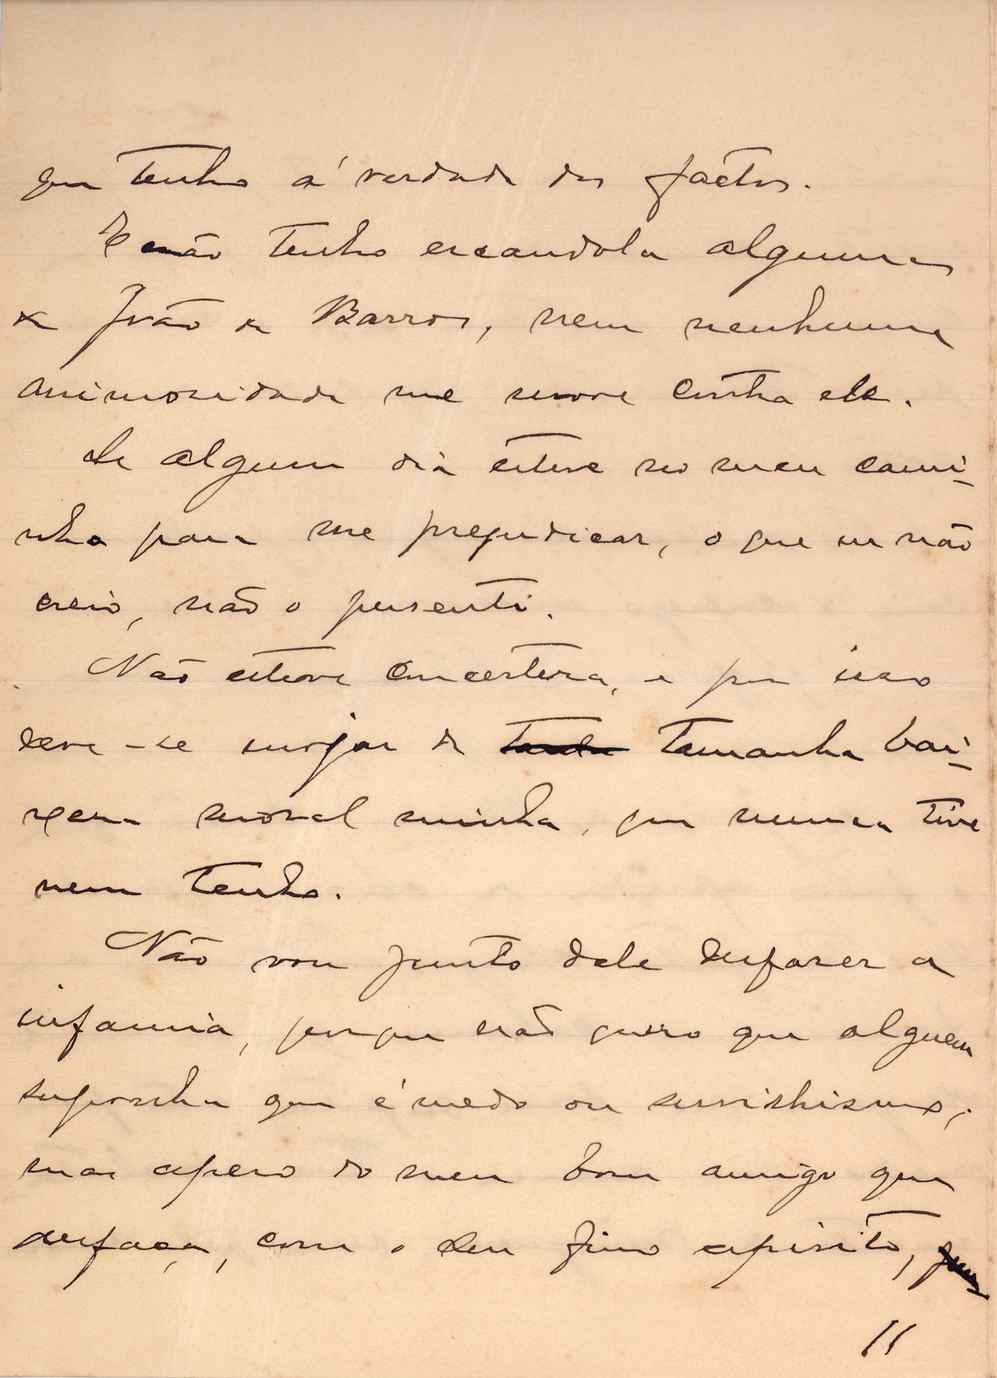 que tenho á verdade dos factos.
E não tenho escandola alguma
de João de Barros, nem nenhuma
animosidade me move contra ele.
Se algum dia esteve no meu cami-
nho para me prejudicar, o que eu não
creio, não o pressenti.
Não esteve com certeza, e por isso
deve-se enojar de tamanha bai-
xesa moral minha, que nunca tive
nem tenho.
Não vou junto dele desfazer a
infamia, porque não quero que alguem
suponha que é medo ou servilhismo;
mas espero do meu bom amigo que
desfaça, com o seu fino espirito,
11